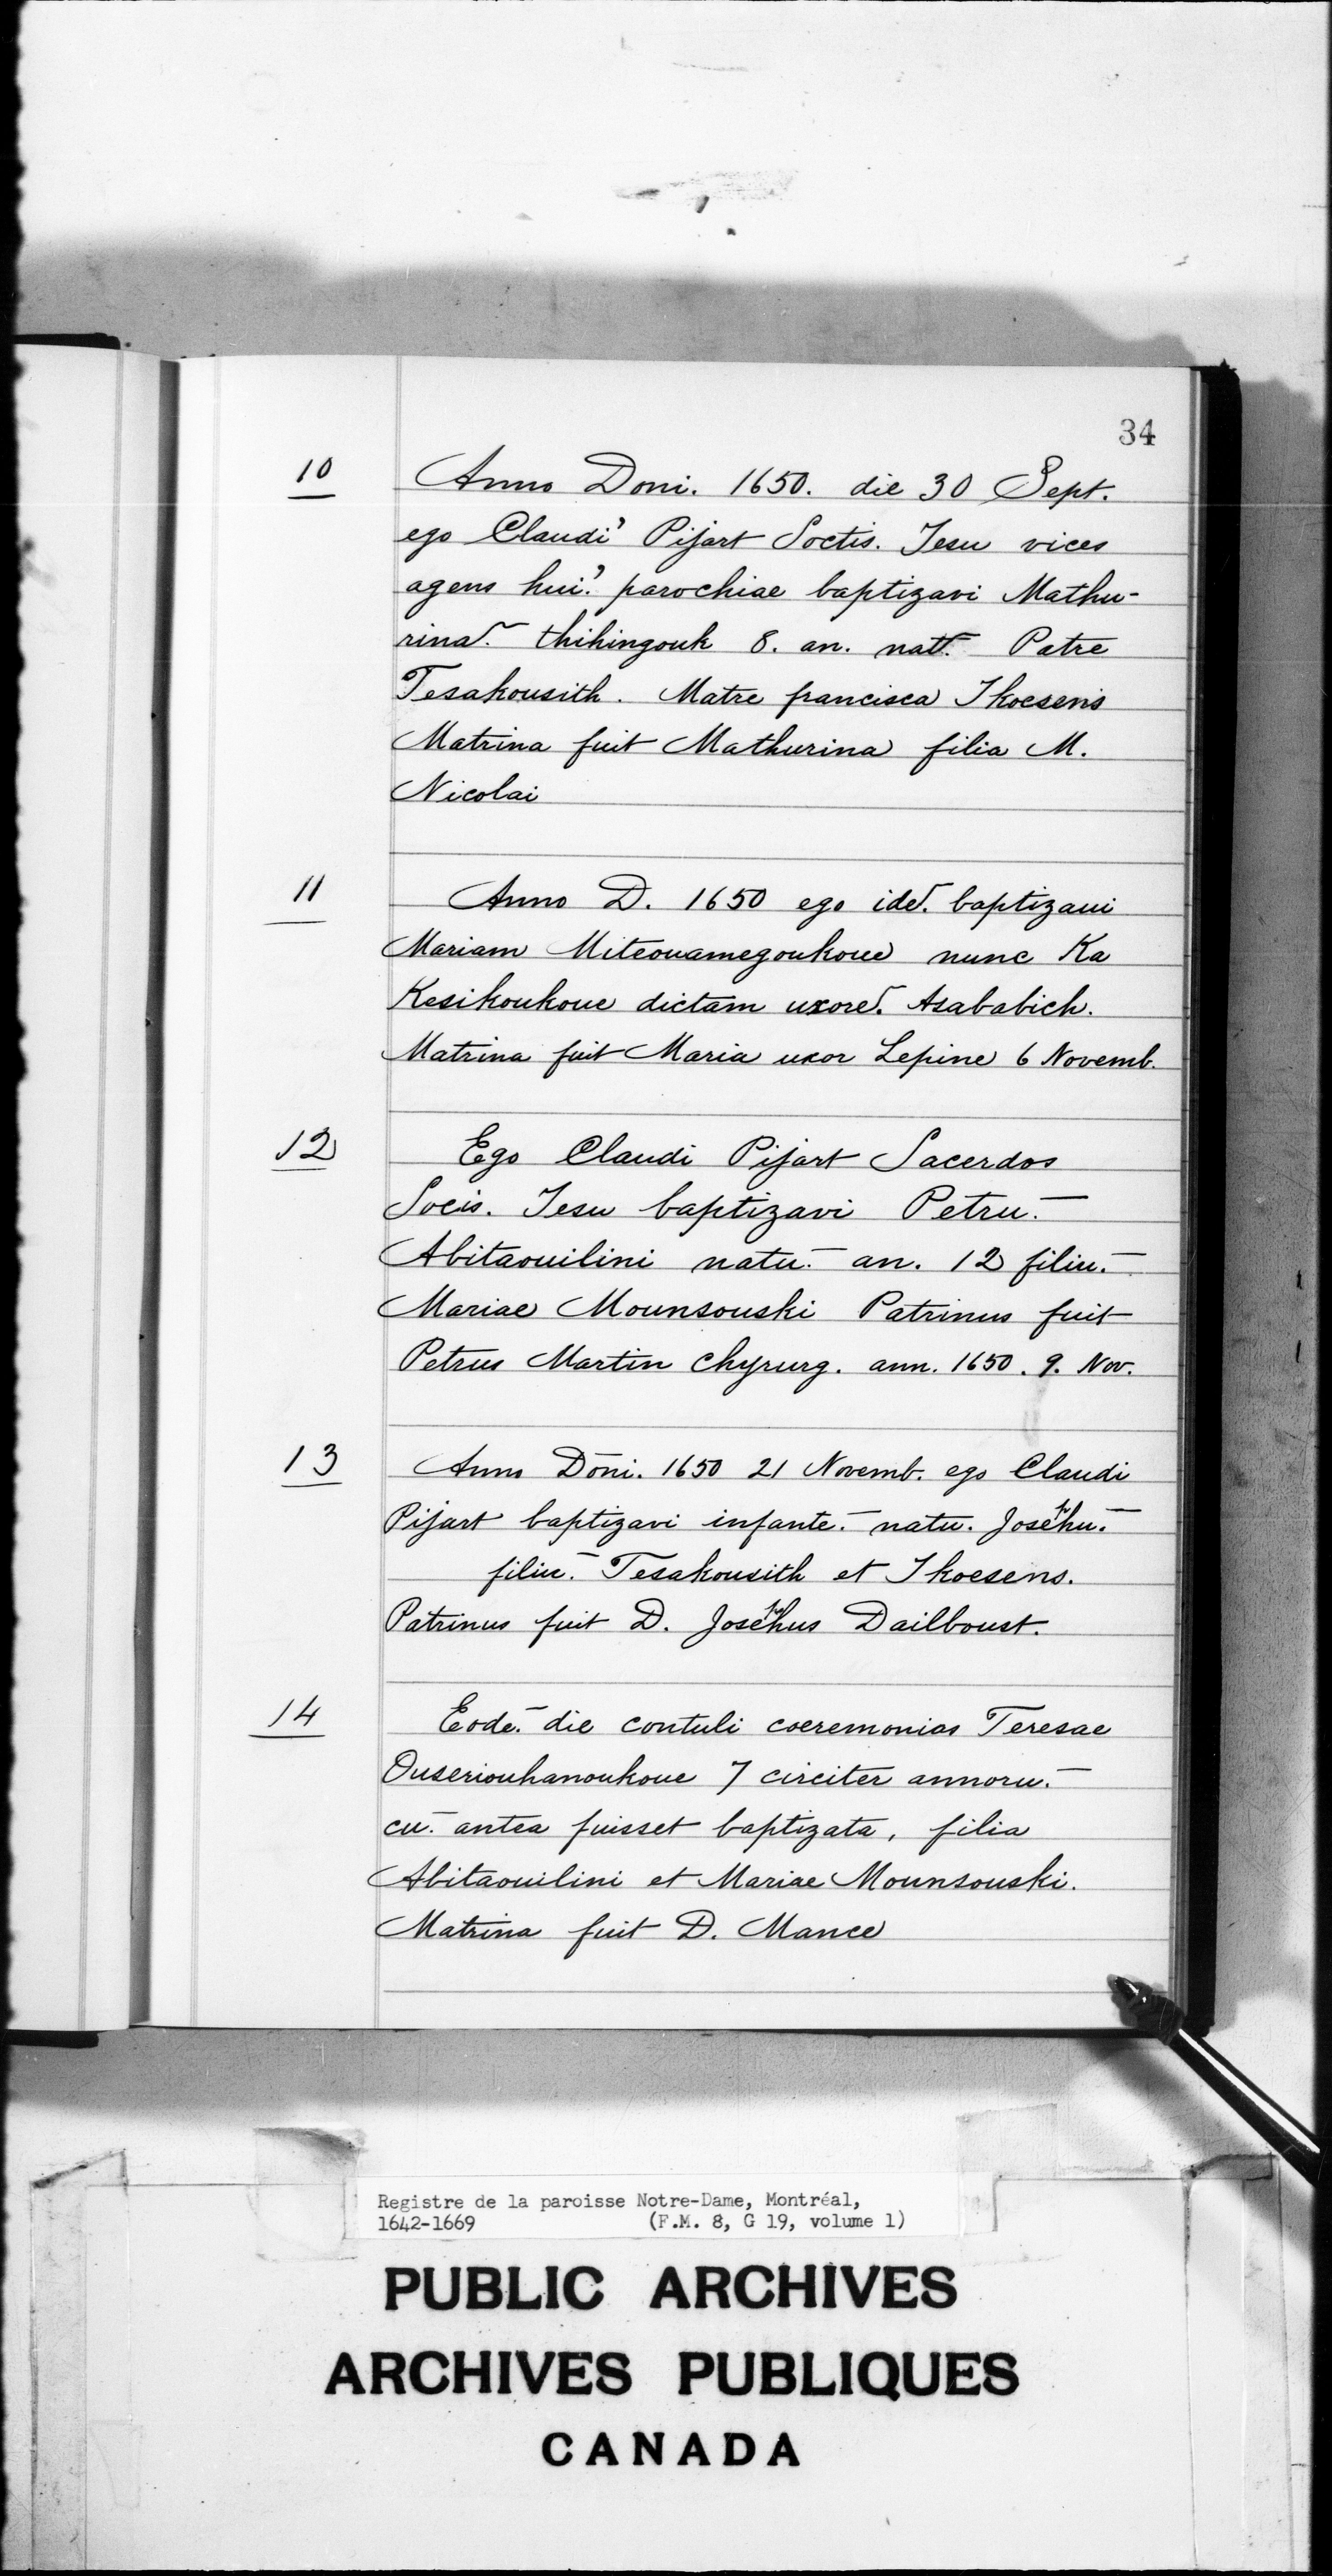 34
10
Anno Doni. 1650. die 30 Sept.
ego Claudi' Pijart Soctis. Jesu vices
agens hui'. parochiae baptizavi Mathu-
rina. thihingouk 8. an. natt. Patre
Tesakousith. Matre francisca Ikoesens
Matrina fuit Mathurina filia M.
Nicolai
11
Anno D. 1650 ego ide. baptizaui
Mariam Miteouamegoukoue nunc Ka
Kesikoukoue dictam uxore. Asababich.
Matrina fuit Maria uxor Lepine 6 Novemb.
12
Ego Claudi Pijart Sacerdos
Socis. Jesu baptizavi Petru.-
Abitaouilini natu.- an. 12 filiu.-
Mariae Mounsouski Patrinus fuit
Petrus Martin chyrurg. ann. 1650. 9. Nov.
13
Anno Dōni. 1650 21 Novemb. ego Claudi
Pijart baptizavi infante.- natu. Josephu.-
filiu.- Tesakousith et Ikoesens.
Patrinus fuit D. Josephus Dailboust.
14
Eode.- die contuli coeremonias Teresae
Ouseriouhanoukoue 7 circiter annoru.-
cu.- antea fuisset baptizata, filia
Abitaouilini et Mariae Mounsouski.
Matrina fuit D. Mance
Registre de la paroisse Notre-Dame, Montréal,
1642-1669 (F.M. 8, G 19, volume 1)
PUBLIC ARCHIVES
ARCHIVES PUBLIQUES
CANADA